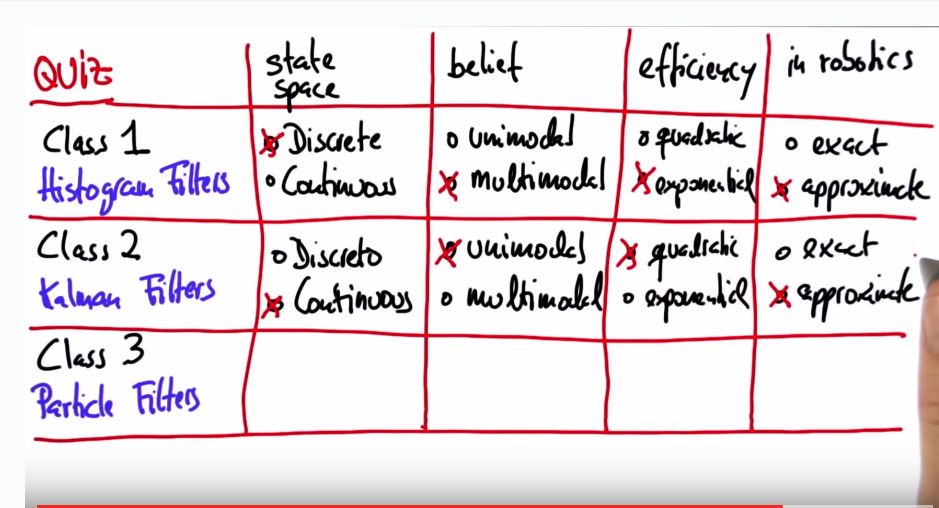 QUIZ
state space
belief
efficiency
in robotics
Class 1
Histogram Filters
Discrete
Continuous
unimodal
multimodal
quadratic
exponential
exact
approximate
Class 2
Kalman Filters
Discrete
Continuous
unimodal
multimodal
quadratic
exponential
exact
approximate
Class 3
Particle Filters